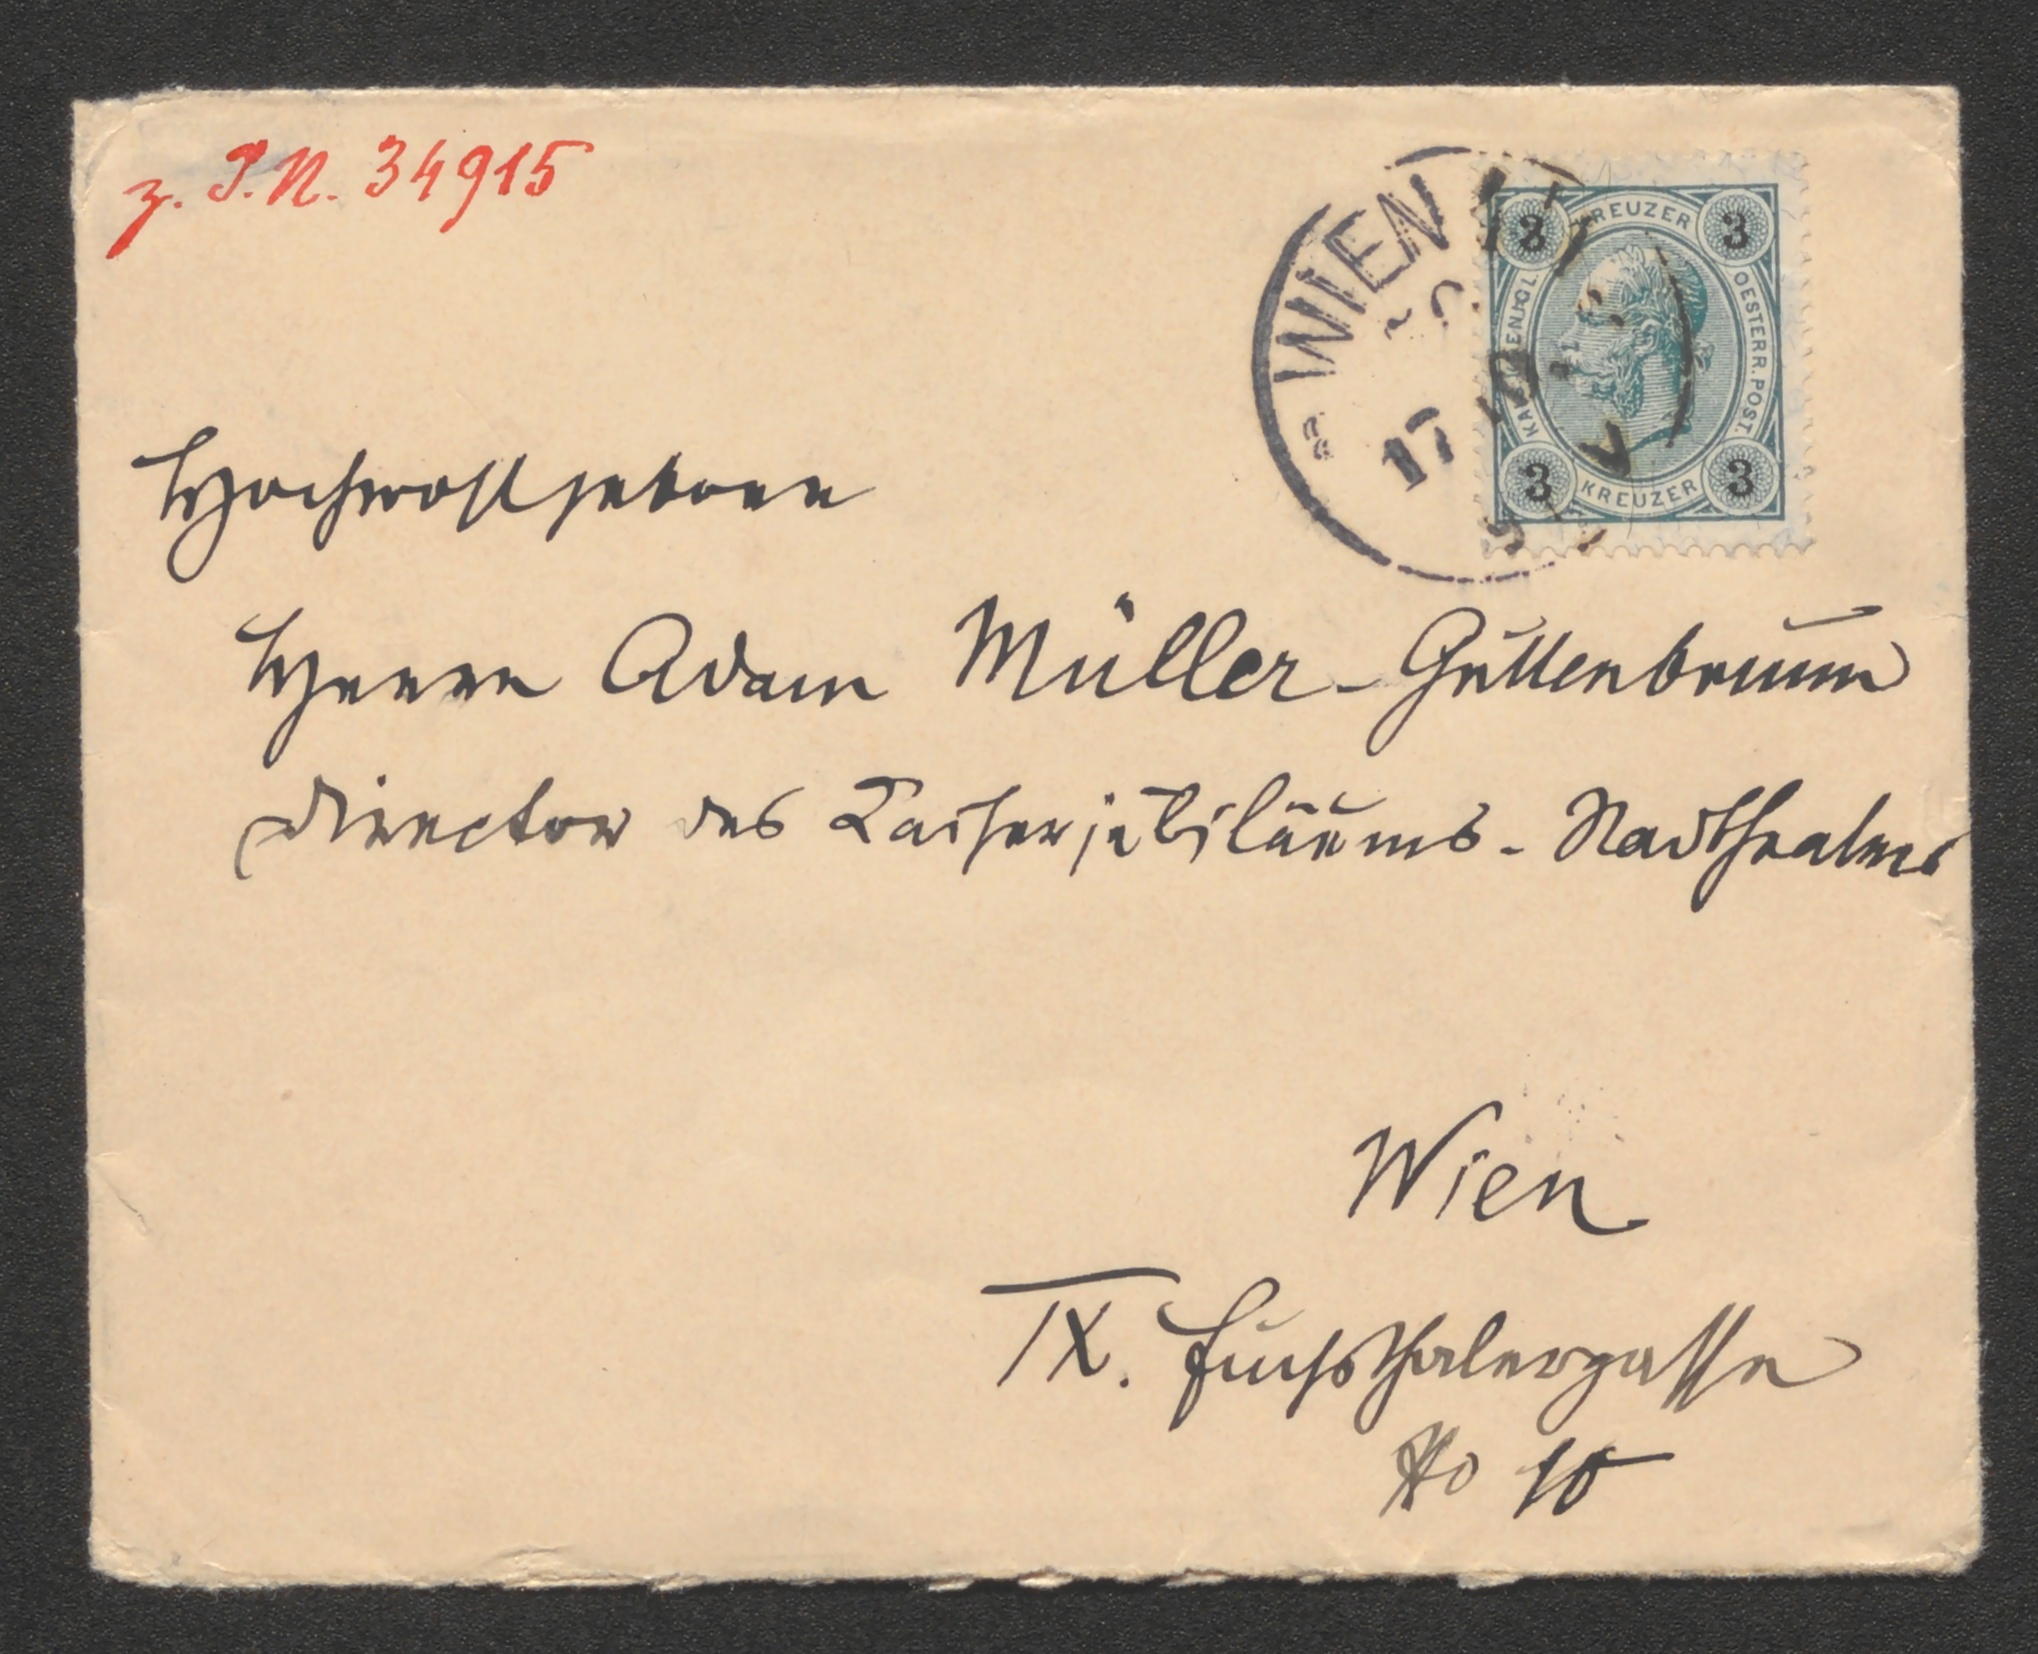 z. I.N. 34915
WIEN
17
KREUZER
KAIS. KOENIGL.
OESTERR. POST.
3 3
3 3
KREUZER
Hochwohlgeboren
Herrn Adam Müller-Guttenbrunn
Director des Kaiserjubiläums-Stadttheaters
Wien
IX. Fuchsthalergasse
No 10